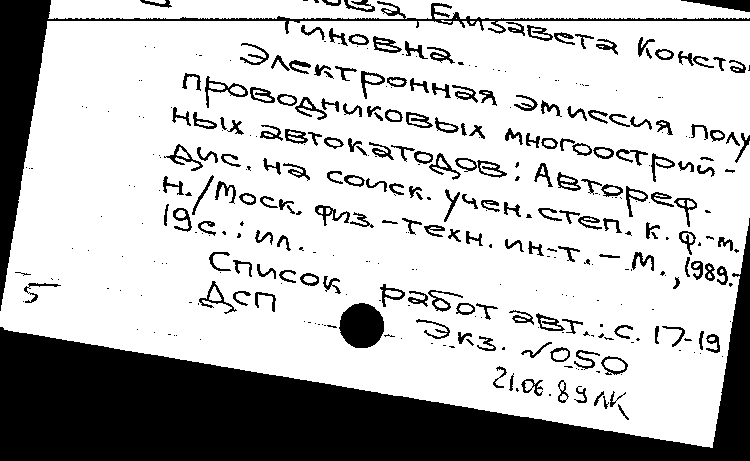 Елизавета Конста
тиновна.
Электронная эмиссия полу
проводниковых многоострий-
ных автокатодов: Автореф.
дис. на соиск. учен. степ. к. ф.-м.
н./Моск. физ.-техн. ин-т. - М., 1989.-
19с.: ил.
Список работ авт.: с. 17-19
ДСП Экз. №050
5
21.06.89 ЛК